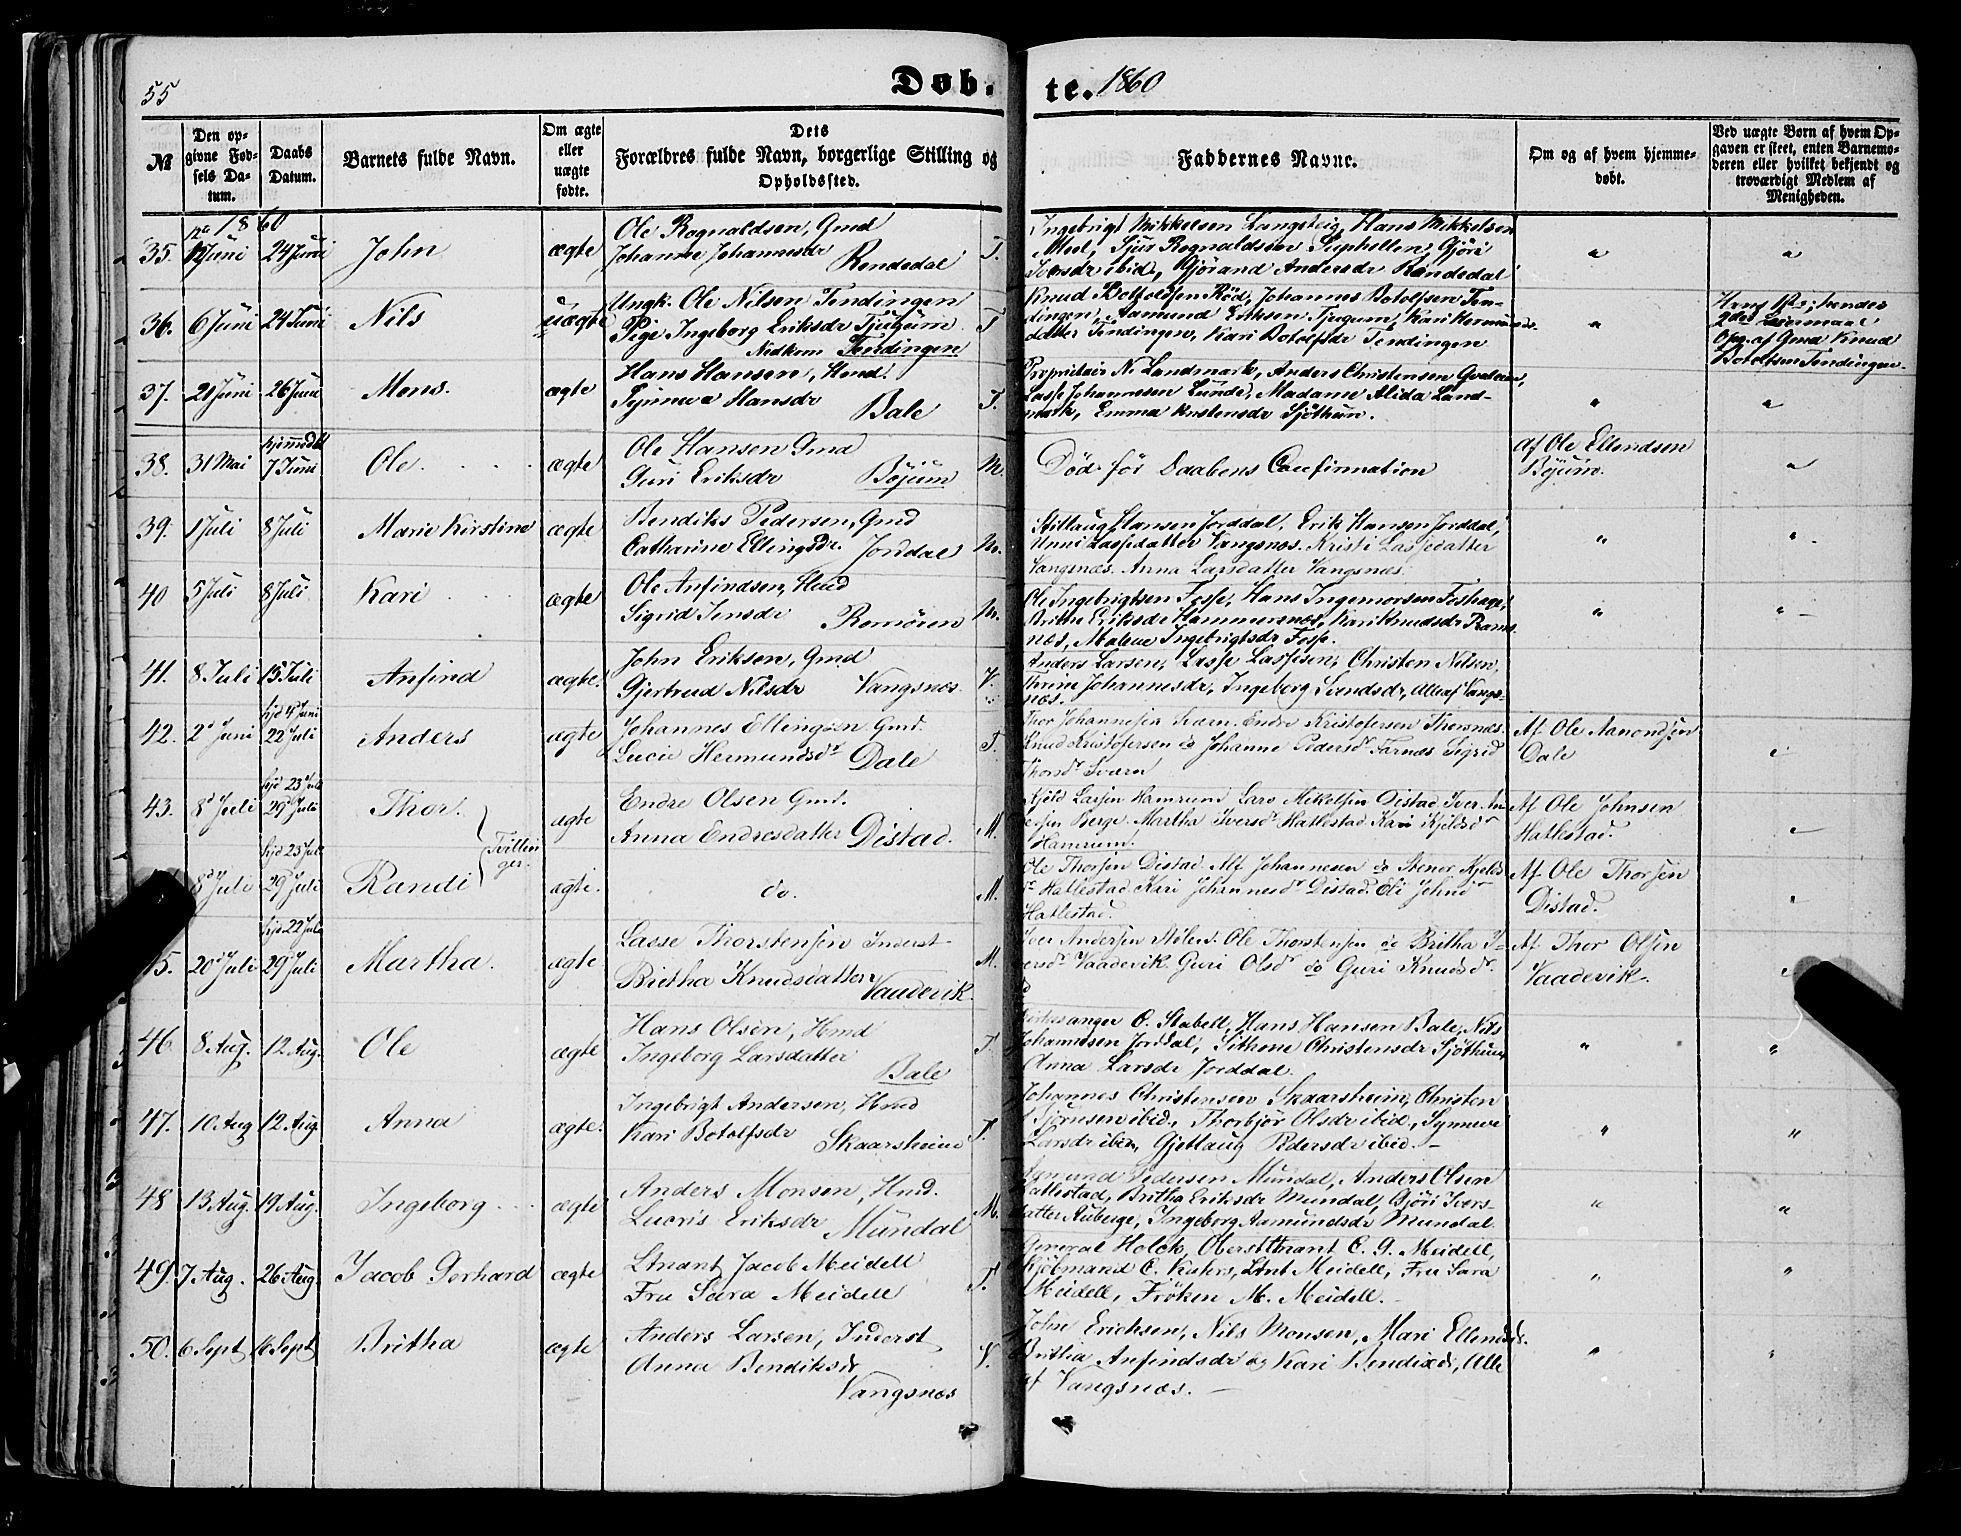 55
Døb-
te. 1860
№
Den op-
givne Fød-
sels Da-
tum.
Daabs
Datum.
Barnets fulde Navn.
Om ægte
eller
uægte
fødte.
Dets
Forældres fulde Navn, borgerlige Stilling og
Opholdssted.
Faddernes Navne.
Om og af hvem hjemme-
døbt.
Ved uægte Børn af hvem Op-
gaven er skeet, enten Barnemo-
deren eller hvilket bekjendt og
troværdigt Medlem af
Menigheden.
1860
35. 12 Juni 24 Juni John ægte
Ole Rognaldsen, Gmd
Johanne Johannesdr Rendedal T.
Ingebrigt Mikkelsen Langeteig, Hans Mikkelsen
Meel, Sjur Rognaldsen Suphellen, Gjöri
Iversdr ibid, Gjörand Andersdr Rendedal
36. 6 Juni 24 Juni Nils uægte
Ungk. Ole Nilsen Tendingen
Pige Ingeborg Eriksdr Tjugum
Nedkom Tendingen T
Knud Botolfsen Röd, Johannes Botolfsen Ten-
dingen, Aamund Eriksen Tjugum, Kari Hermunds-
datter Tendingen, Kari Botolfsdr Tendingen
Hans 1ste; hendes
2det Leiermaal
Opg. af Gmd Knud
Botolfsen Tendingen.
37. 21 Juni 26 Juni Mons. ægte
Hans Hansen, Hmd.
Synneva Hansdr Bale T.
Proprietair N. Landmark, Anders Christensen
Lasse Johannessen Lunde, Madame Alida Land-
mark, Emma Kristensdr Sjöthun.
38. 31 Mai hjemmedbt 7 Juni Ole. ægte
Ole Hansen Gmd
Guri Eriksdr Böjum M.
Död för Daabens Confirmation
af Ole Ellendsen
Böjum.
39. 1 Juli 8 Juli Marie Kirstine ægte
Bendiks Pedersen, Gmd
Catharine Ellingsdr. Jordal M.
Stillaug Hansen Jorddal, Erik Hansen Jorddal,
Unni Lassedatter Vangsnes. Kristi Lassedatter
Vangsnæs. Anna Larsdatter Vangsnæs.
40 5 Juli 8 Juli Kari ægte
Ole Anfindsen, Hmd
Sigrid Jensdr Romören M.
Ole Ingebrigtsen Fosse, Hans Ingemorsen Foshage,
Brithe Eriksdr Hammersnæs, Kari Knudsdr Ram-
næs, Malene Ingebrigtsdr Fosse.
41. 8 Juli 15 Juli Anfind ægte.
John Eriksen, Gmd
Gjertrud Nilsdr Vangsnæs V.
Anders Larsen, Lasse Lassesen, Christen Nilsen,
Thrine Johannesdr, Ingeborg Svendsdr, Alle af Vangs-
næs.
42. 2d Juni hjd 4 Juni 22 Juli Anders ægte
Johannes Ellingsen Gmd.
Lucie Hermundsdr Dale T.
Thor Johannesen Sværn. Endre Kristofersen Thorsnæs.
Knud Kristofersen do Johanne Pedersdr Tarnæs Sigrid
Thorsdr Sværn
Af Ole Aamondsen
Dale
43. 8d Juli hjd 23 Juli 29d Juli Thor. ægte
Tvillin-
ger.
Endre Olsen Gmd.
Anna Endresdatter Distad. M.
Kjeld Larsen Hamrum Lars Mikkelsen Distad Iver An-
dersen Berge. Martha Iversdr Hatlestad Kari Kjeldsdr
Hamrum.
Af Ole Johnsen
Hatlestad.
8d Juli hjd 23 Juli 29d Juli Randi ægte.
do. M.
Ole Thorsen Distad Alf Johannesen do Stener Kjelds-
Hatlestad. Kari Johannesdr Distad. Eli Johnsdr
Hatlestad.
Af Ole Thorsen
Distad.
45. 20d Juli hjd 22 Juli 29d Juli Martha. ægte
Lasse Thorstensen Inderst
Britha Knudsdatter Vaadevik. M.
Iver Andersen Mølen. Ole Thorstensen do Britha I-
versdr Vaadevik Guri Olsdr do Guri Knudsdr.
Af Thor Olsen
Vaadevik.
46. 8 Aug. 12 Aug. Ole ægte
Hans Olsen, Hmd
Ingeborg Larsdatter
Bale T.
Kirkesanger O. Stabell, Hans Hansen Bale, Nils
Johannesen Jorddal, Sithone Christensdr Sjöthun
Anna Larsdr Jorddal.
47. 10 Aug 12 Aug. Anna ægte.
Ingebrigt Andersen, Hmd
Kari Botolfsdr Skaarsheim T.
Johannes Christensen Skaarsheim, Christen
ibid., Thorbjör Olsdr ibid., Synneve
Larsdr ibid, Gjetlaug Pedersdr ibid.
48 13 Aug. 19 Aug. Ingeborg ægte
Anders Monsen, Hmd.
Lucris Eriksdr Mundal M.
Aamund Pedersen Mundal, Anders Olsen
Hatlestad, Britha Eriksdr Mundal, Gjöri Ivers-
datter Auberge, Ingeborg Aamundsdr Mundal.
49. 7 Aug. 26 Aug Jacob Gerhard ægte
Ltnant Jacob Meidell
Fru Sara Meidell T.
General Holck, Oberstltnant C. G. Meidell,
Kjöbmand C. Ltnt Meidell, Fru Sara
Meidell, Fröken M. Meidell.
50. 6 Sept 16 Sept Britha ægte
Anders Larsen, Inderst
Anna Bendiksdr
Vangsnæs V.
John Erichsen, Nils Monsen, Mari Ellendsdr.
Britha Anfindsdr og Kari Bendixdr, Alle
af Vangsnæs.